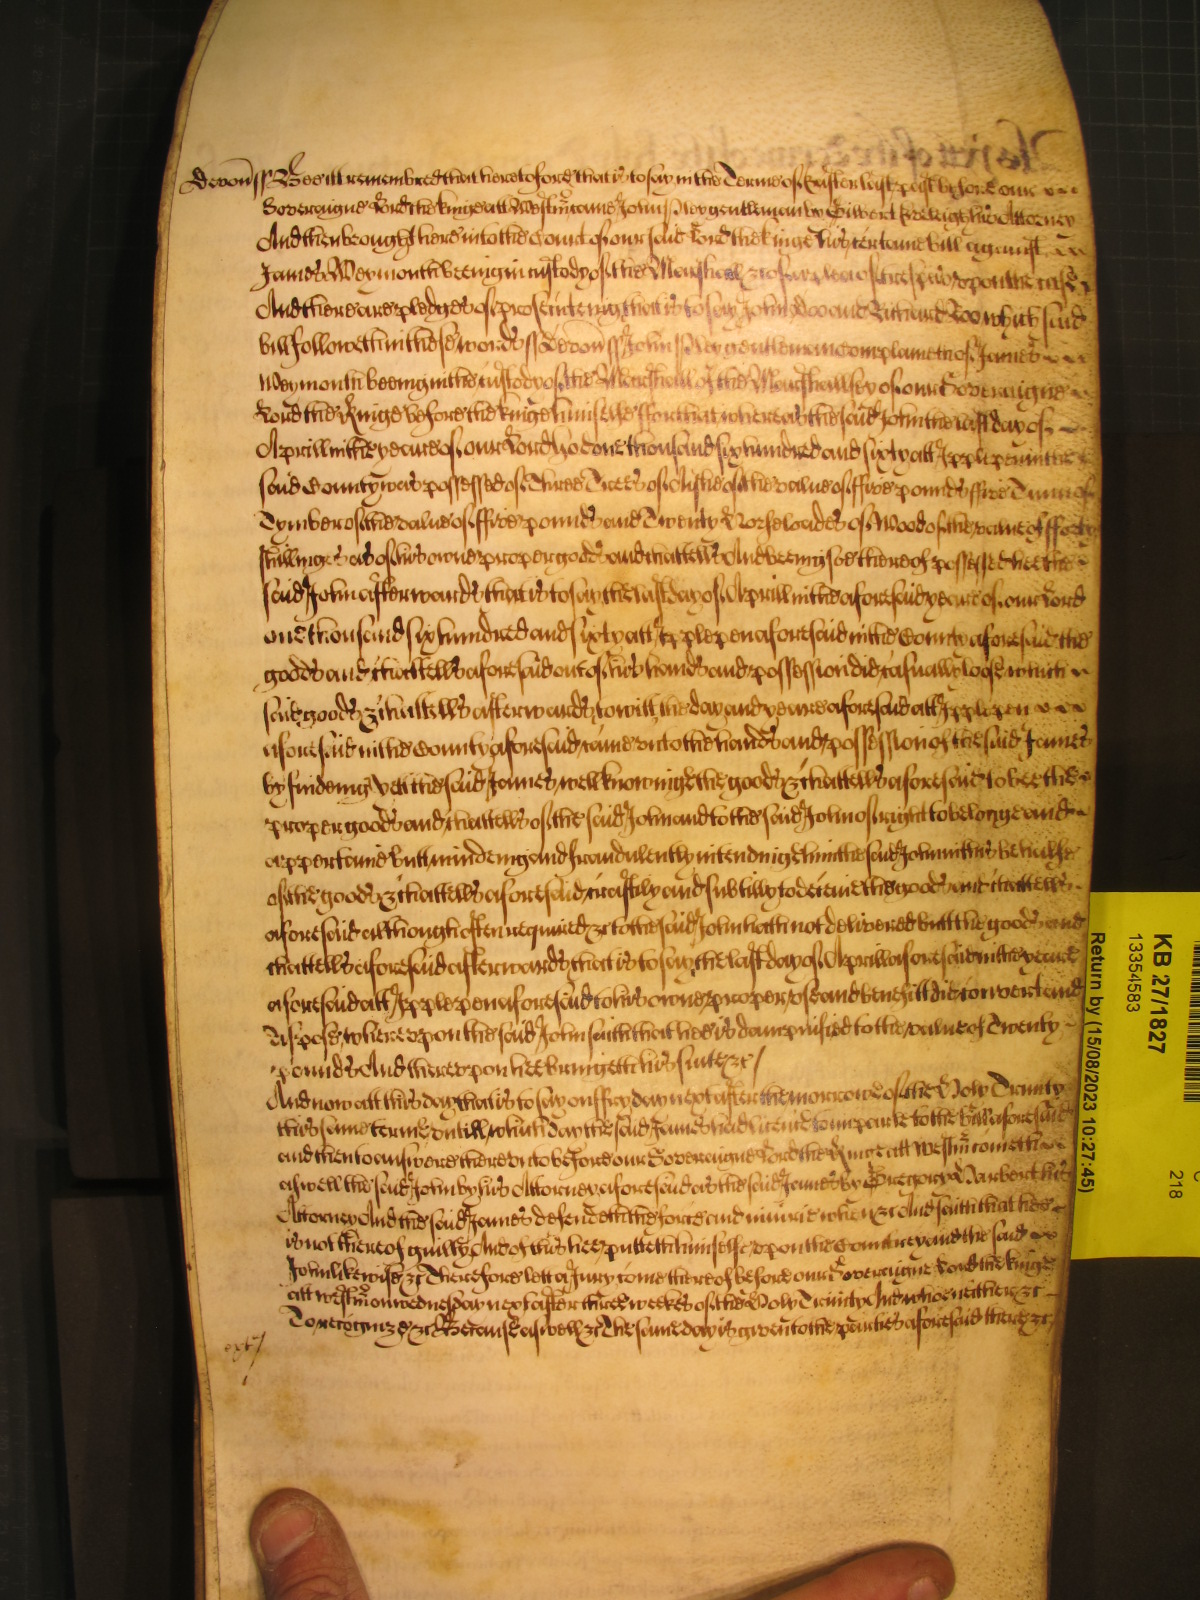 Devon ss Bee itt remembred that heretofore that is to say in the Terme of Easter last past before our
Soveraigne Lord the kinge att Westm̃ came John Ivy gentleman by Gilbert his Attorney
And then brought here into the Court of our said Lord the kinge his certaine bill against
James Weymouth beeing in custody of the Marshall &c of a plea of trespas upon the case
And there are pledges of prosecuteing that is to say John Doo and Richard Roo which said
bill followeth in these words ss Devon ss John Ivy gentleman complaineth of James
Weymouth beeing in the custody of the Marshall of the Marshallsey of our Soveraigne
Lord the Kinge before the kinge himselfe ffor that whereas the said John the last day of
Aprill in the yeare of our Lord god one thousand six hundred and sixty att Applepen in the
said County was possessed of Three Trees of of the value of ffive pounds ffive Tunn of
Tymber of the value of ffive pounds and Twenty Horseloades of Wood of the value of fforty
shillinges as of his owne proper goods and chattells And beeing soe thereof possessed hee the
said John afterwards that is to say the last day of Aprill in the aforesaid yeare of our Lord
one thousand six hundred and sixty att Applepen aforesaid in the County aforesaid the
goods and chattells aforesaid out of his hands and possession did casually loose which
said goods & chattells afterwards to witt the day and yeare aforesaid att Applepen
aforesaid in the County aforesaid came unto the hands and possession of the said James
by findeing yett the said James well knowinge the goods & chattells aforesaid to bee the
proper goods and chattells of the said John and to the said John of right to belonge and
appertaine butt mindeing and fraudulently intendinge him the said John in this behalfe
of the goods & chattells aforesaid craftily and subtilly to deceive the goods and chattells
aforesaid although often required &c to the said John hath not delivered butt the goods and
chattells aforesaid afterwards that is to say the last day of Aprill aforesaid in the yeare
aforesaid att Applepen aforesaid to his owne proper use and benefitt did convert and
dispose whereupon the said John saith that hee is dampnified to the value of Twenty
pounds And thereupon hee bringeth his suite &c /
And now att this day that is to say on ffryday next after the morrow of the Holy Trinity
this same terme untill which day the said James had licence to imparle to the bill aforesaid
and then to answere thereunto before our Soveraigne Lord the Kinge att Westm̃ cometh
aswell the said John by his Attorney aforesaid as the said James by Gregory his
Attorney And the said James defendeth the force and iniurie when &c And saith that hee
is not thereof guilty And of this hee putteth himselfe upon the Countrey and the said
John likewise &c Therefore lett a Jury come thereof before our Soveraigne Lord the kinge
att Westm̃ on wednesday next after three weekes of the Holy Trinity And who neither &c
To recognize &c Because aswell &c The same day is given to the parties aforesaid there &c
KB 27/1827
13354583
218
Return by (15/08/2023 10:27:45)